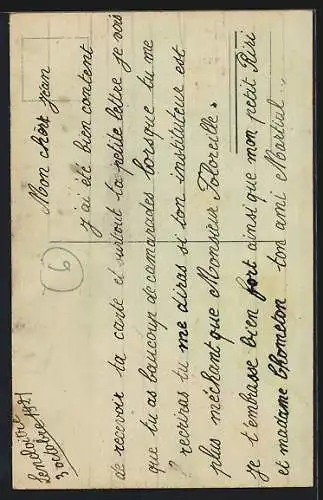 3 octobre 1921
Mon chèr jean
j'ai été bien content
de recevoir ta carte et surtout ta petite lettre je vois
que tu as baucoup de camarades lorsque tu me
recriras tu me diras si ton instituteur est
plus méchant que Monsieur Foloreille.
je t'embasse bien fort ainsi que mon petit Riri
et madame Chometon ton ami Martial
6